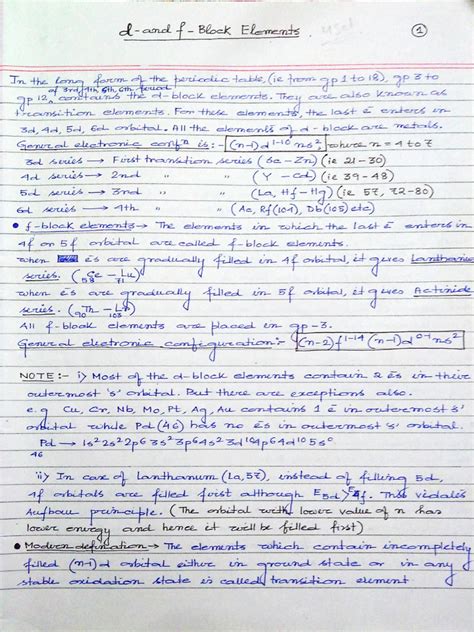 d-and f-Block Elements
1
In the long form of the periodic table, (ie from gp 1 to 18), gp 3 to
of 3rd, 4th, 5th, 6th period
gp 12, contains the d-block elements. They are also known as
transition elements. For these elements, the last ē enters in
3d, 4d, 5d, 6d orbital. All the elements of d-block are metals.
General electronic confⁿ is :- (n-1)d¹⁻¹⁰ ns², where n = 4 to 7
3d series → First transition series (Sc - Zn) (ie 21-30)
4d series → 2nd " " (Y - Cd) (ie 39-48)
5d series → 3rd " " (La, Hf - Hg) (ie 57, 72-80)
6d series → 4th " " (Ac, Rf(104), Db(105) etc)
• f-block elements → The elements in which the last ē enters in
4f or 5f orbital are called f-block elements.
when ēs are gradually filled in 4f orbital, it gives Lanthanide
series. (₅₈Ce - ₇₁Lu)
when ēs are gradually filled in 5f orbital, it gives Actinide
series. (₉₀Th - ₁₀₃Lr)
All f-block elements are placed in gp-3.
General electronic configuration:- (n-2)f¹⁻¹⁴ (n-1)d⁰⁻¹ ns²
NOTE :- i) Most of the d-block elements contain 2 ēs in their
outermost 's' orbital. But there are exceptions also.
e.g Cu, Cr, Nb, Mo, Pt, Ag, Au contains 1 ē in outermost 's'
orbital while Pd(46) has no ēs in outermost 's' orbital.
Pd → 1s² 2s² 2p⁶ 3s² 3p⁶ 4s² 3d¹⁰ 4p⁶ 4d¹⁰ 5s⁰
46
ii) In case of Lanthanum (La, 57), instead of filling 5d,
4f orbitals are filled first although E5d > E4f. This violates
Aufbau principle. (The orbital with lower value of n has
lower energy and hence it will be filled first)
• Modern defination → The elements which contain incompletely
filled (n-1)d orbital either in ground state or in any
stable oxidation state is called transition element